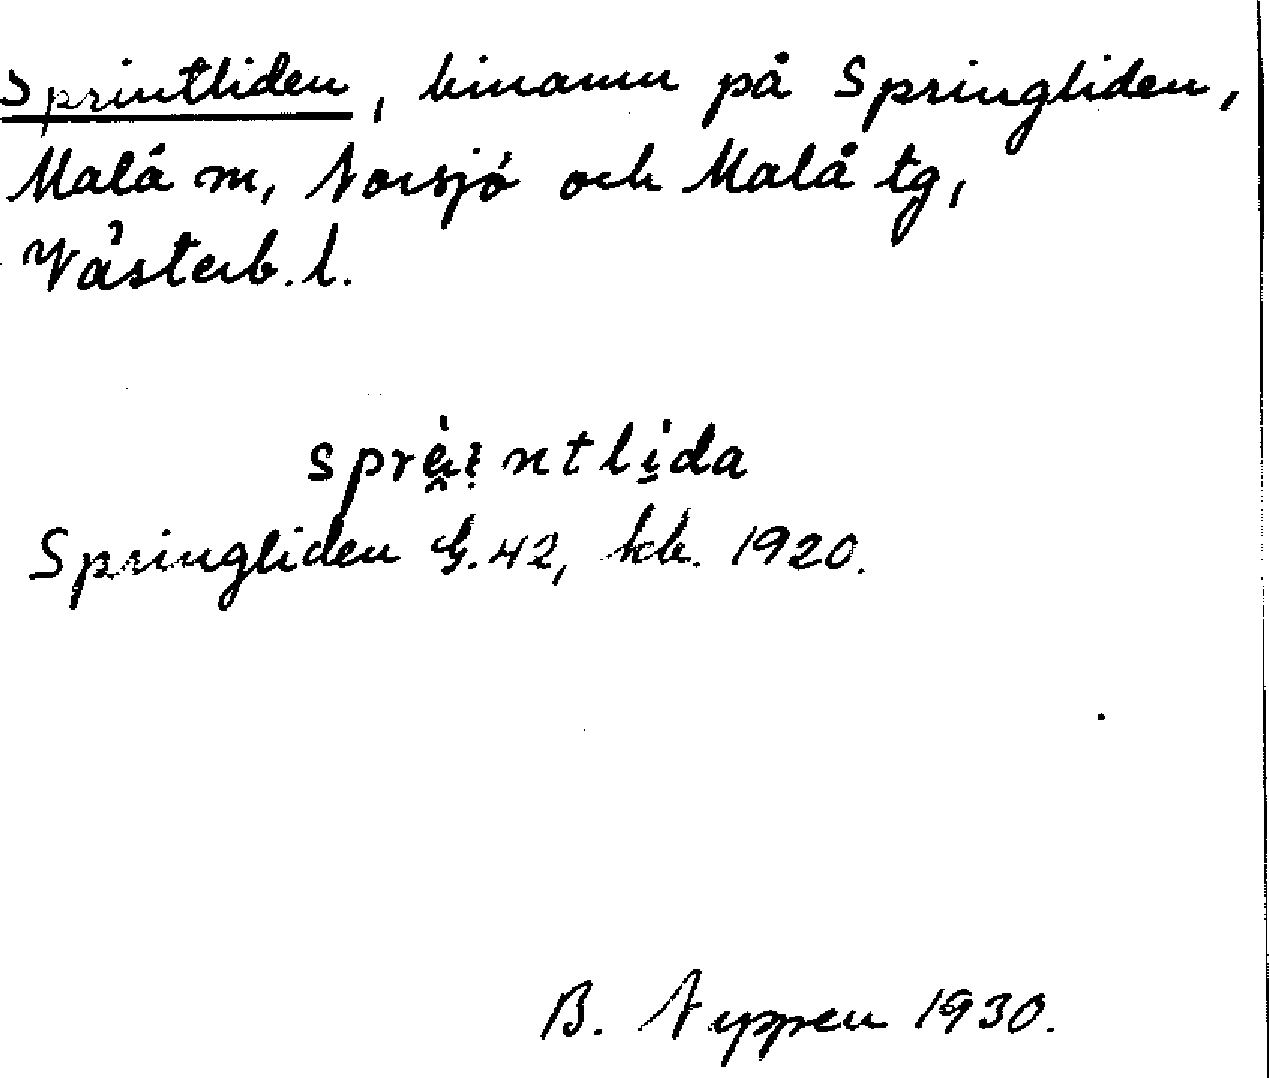 Sprintliden, binamn på Springliden,
Malå sn, Norsjö och Malå tg,
Västerb. l.
språintlida
Springliden G. 42, kb. 1920.
B. Nyppen 1930.